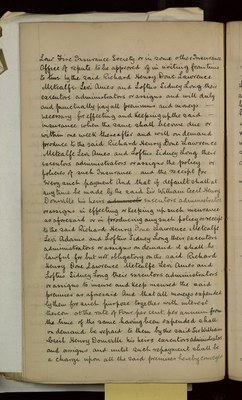 Law Fire Insurance Society or in some other Insurance
Office of repute to be approved of in writing from time
to time by the said Richard Henry Dove Lawrence
Metcalfe Leo Ames and Loftus Sidney Long their
executors administrators or assigns and will duly
and punctually pay all premiums and moneys
necessary for effecting and keeping up the said
insurance when the same shall become due or
within one week thereafter and will on demand
produce to the said Richard Henry Dove Lawrence
Metcalfe Leo Ames and Loftus Sidney Long their
executors administrators or assigns the policy or
policies of such Insurance and the receipt for
every such payment And that if default shall at
any time be made by the said Sir William Cecil Henry
Domville his heirs executors administrators
or assigns in effecting or keeping up such insurance
as aforesaid or in producing any such policy or receipt
to the said Richard Henry Dove Lawrence Metcalfe
Leo Adams and Loftus Sidney Long their executors
administrators or assigns on demand it shall be
lawful for but not obligatory on the said Richard
Henry Dove Lawrence Metcalfe Leo Ames and
Loftus Sidney Long their executors administrators
or assigns to insure and keep insured the said
premises as aforesaid And that all moneys expended
by them for such purpose together with interest
thereon at the rate of Four per cent per annum from
the time of the same having been expended shall
on demand be repaid to them by the said Sir William
Cecil Henry Domville his heirs executors administrators
and assigns and until such repayment shall be
a charge upon all the said premises hereby conveyed